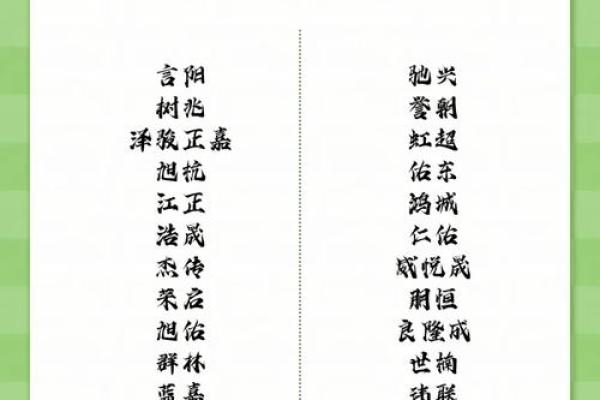 言阳
树兆
泽骏正嘉
旭杭
江正
浩晟
杰传
荣启
旭佑
群林
蓝嘉
驰兴
誉朝
虹超
佑东
鸿城
仁佑
威悦晟
朋恒
良隆成
世楠
玮联